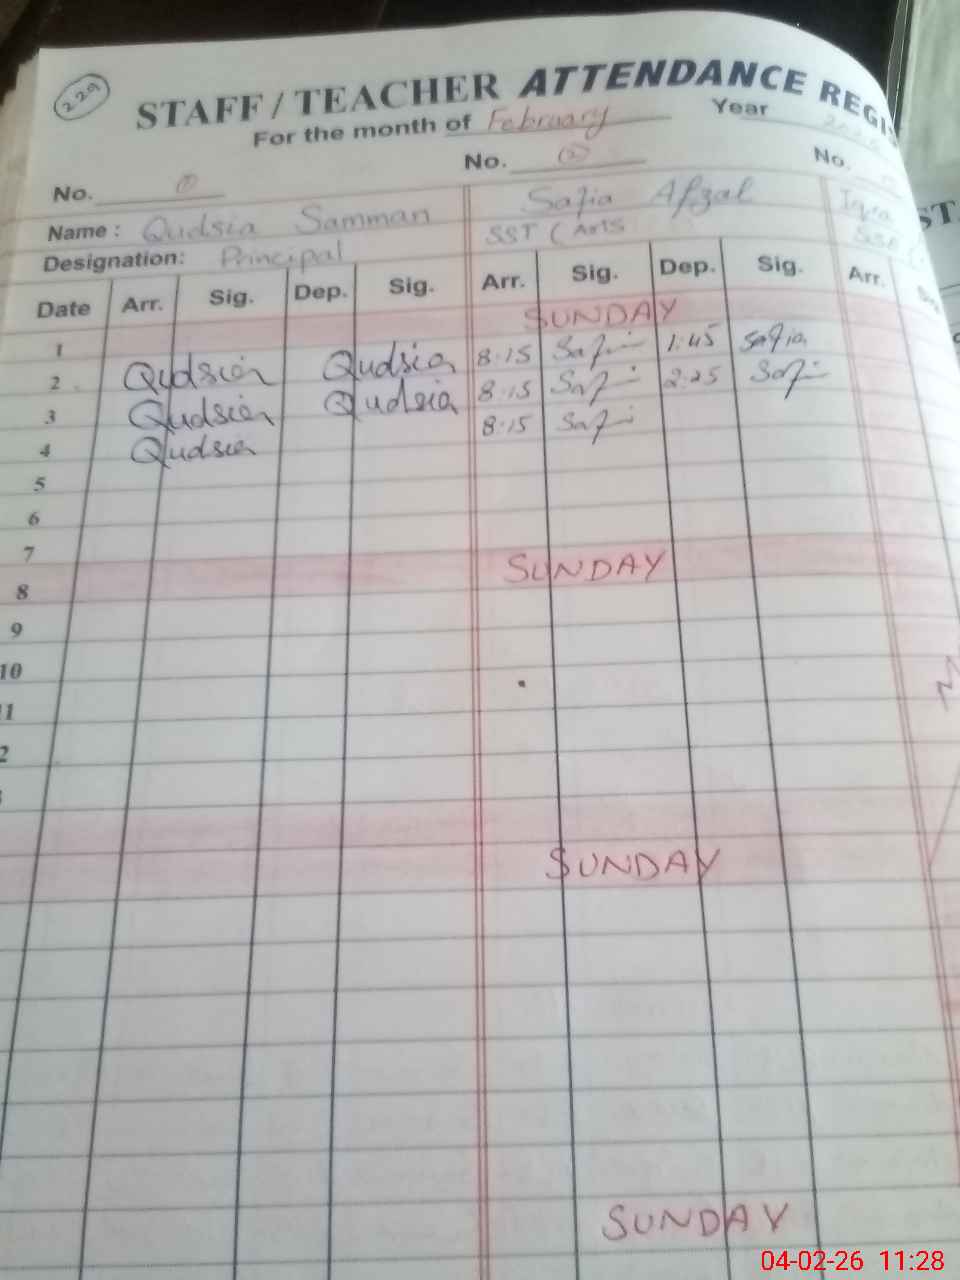 229
STAFF / TEACHER ATTENDANCE REGIS
For the month of February Year
No. 1 No. 2 No.
Name : Qudsia Samman Safia Afzal Iqra
Designation: Principal SST (Arts SSE
Date Arr. Sig. Dep. Sig. Arr. Sig. Dep. Sig. Arr.
1 SUNDAY
2 Qudsia Qudsia 8:15 Safia 1:45 Safia
3 Qudsia Qudsia 8:15 Safia 2:25 Safia
4 Qudsia 8:15 Safia
5
6
7
8 SUNDAY
9
10
11
2
SUNDAY
SUNDAY
04-02-26 11:28